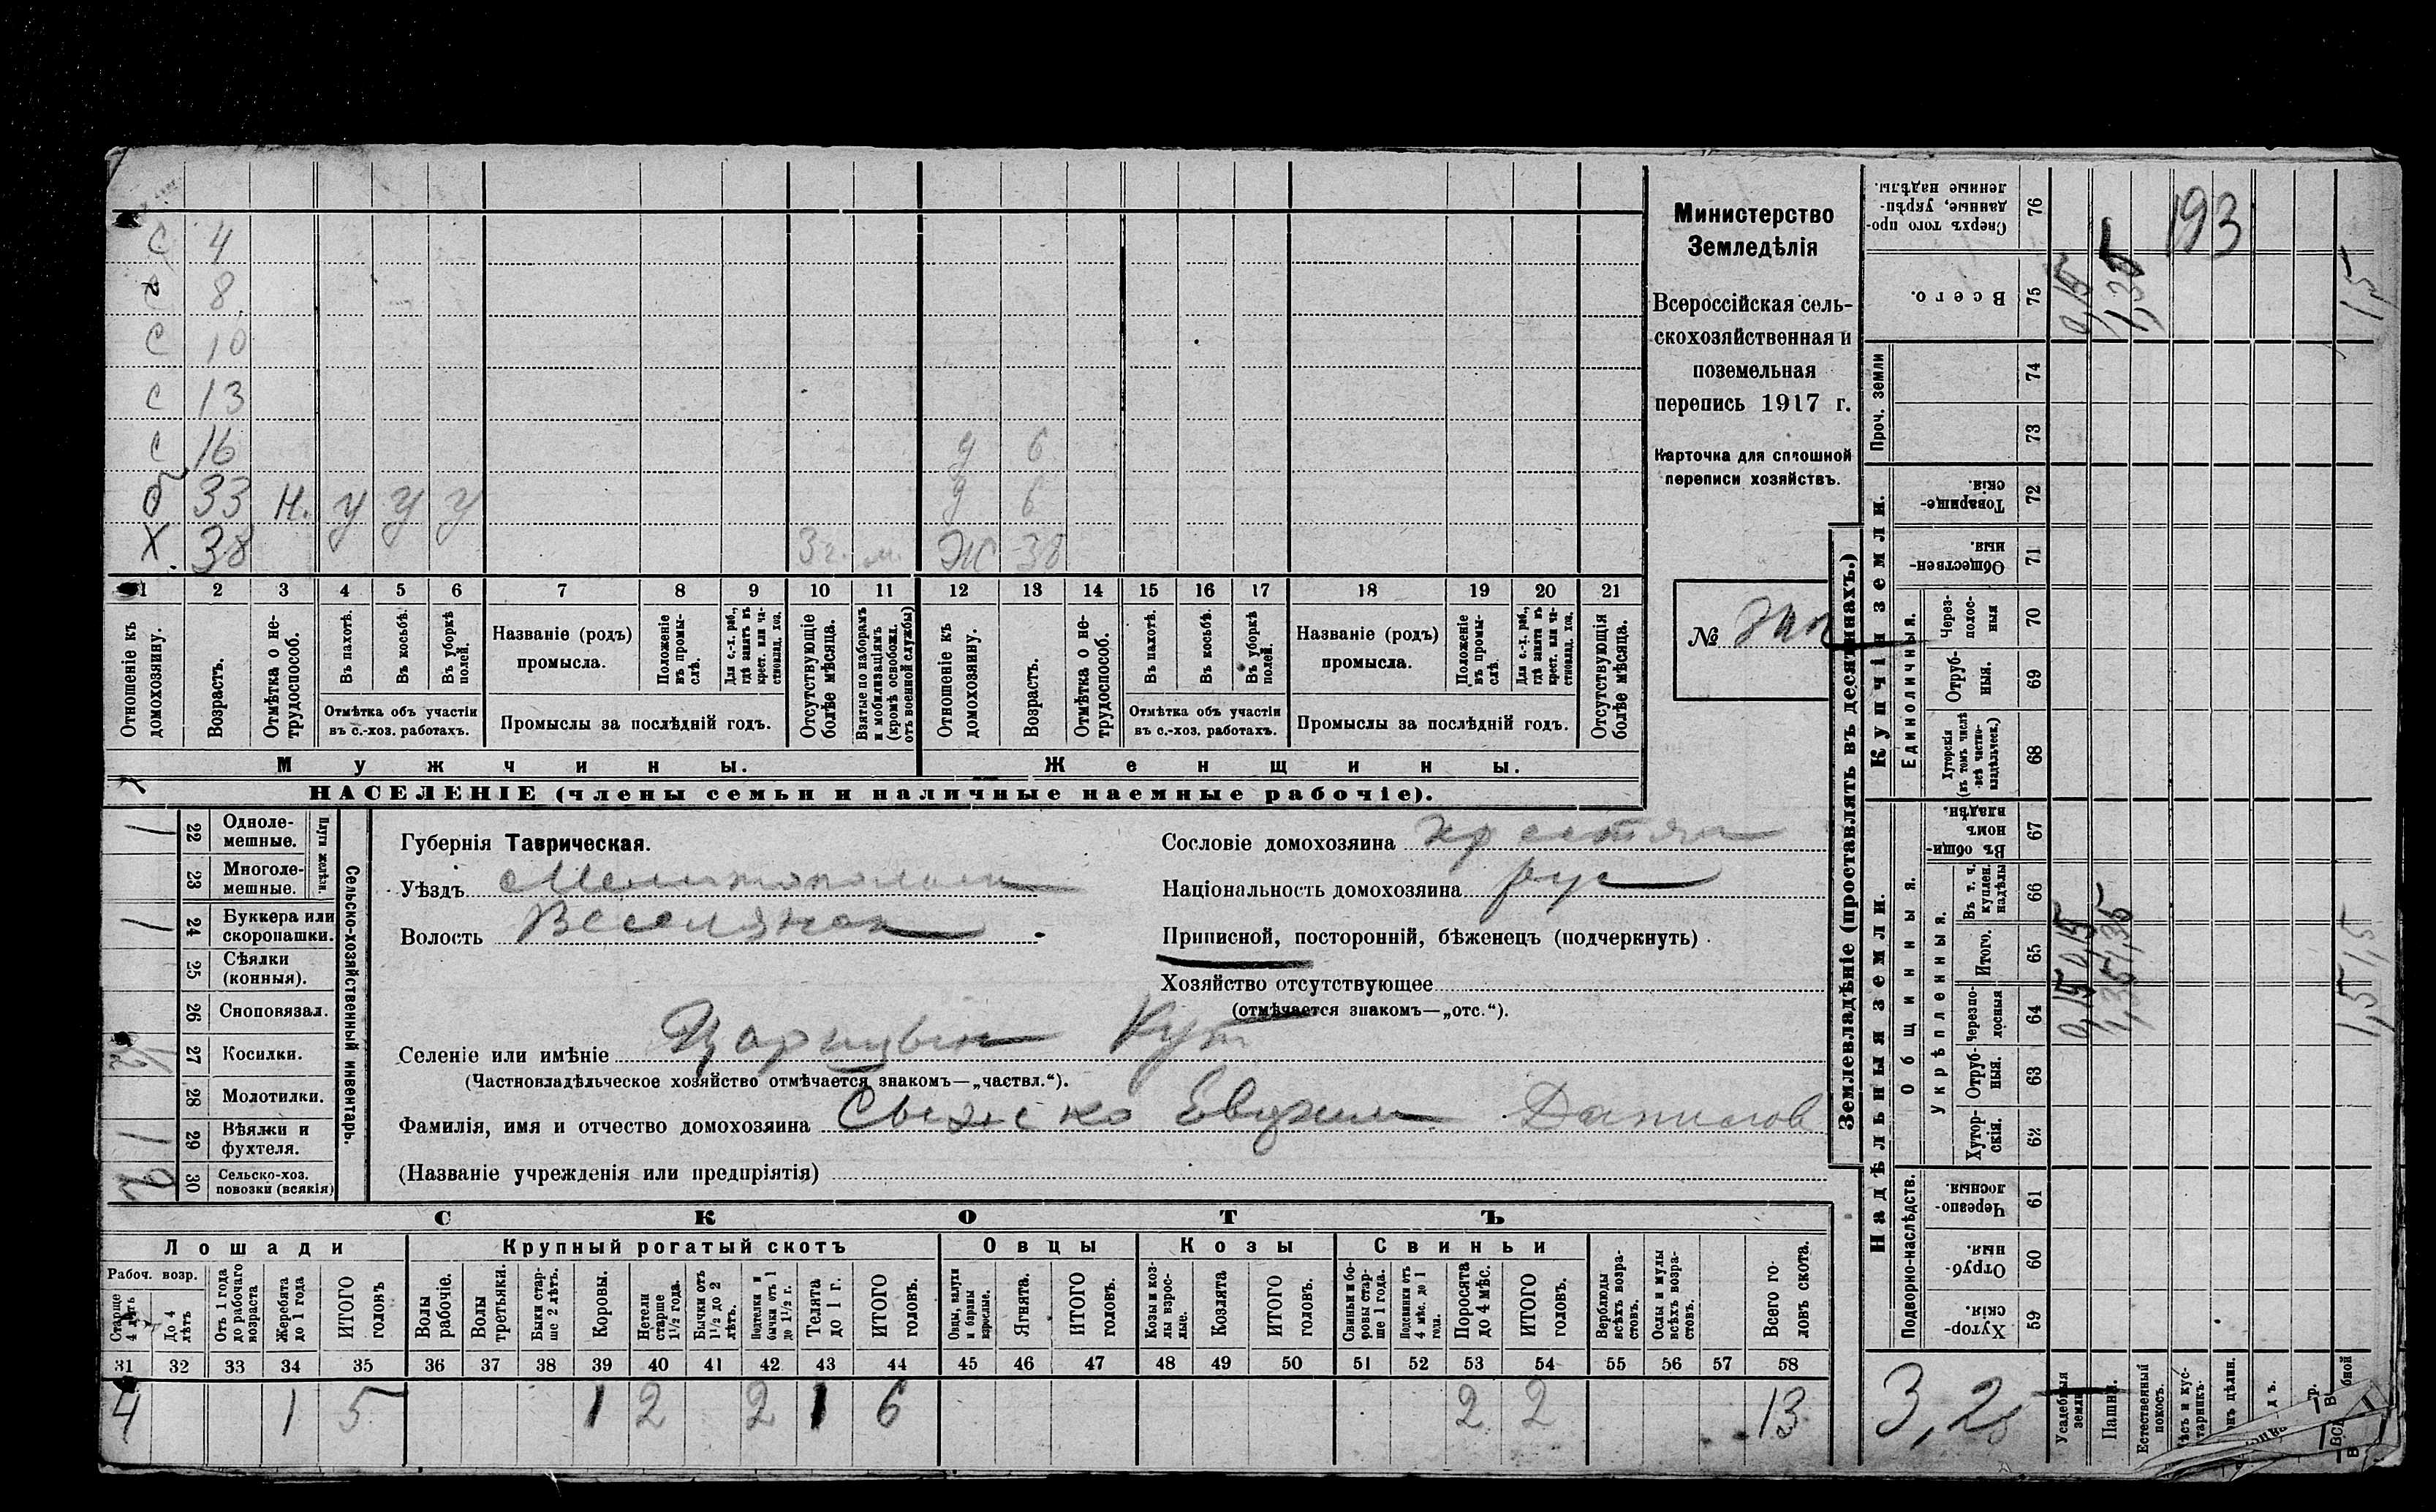 С 4
С 8
С 10
С 13
С 16 д 6
б 33 н. у у у д 6
Х. 38 3 г. м. Ж 38
1 2 3 4 5 6 7 8 9 10 11 12 13 14 15 16 17 18 19 20 21
Отношеніе къ домохозяину.
Возрастъ.
Отмѣтка о не-трудоспособ.
Въ пахотѣ.
Въ косьбѣ.
Въ уборкѣ полей.
Отмѣтка объ участіи
въ с.-хоз. работахъ.
Названіе (родъ)
промысла.
Положеніе въ промы-слѣ.
Для с.-х. раб., гдѣ занятъ въ крест. или ча-стновлад. хоз.
Промыслы за послѣдній годъ.
Отсутствующіе болѣе мѣсяца.
Взятые по наборамъ и мобилизаціямъ (кромѣ освобожд. отъ военной службы)
Отношеніе къ домохозяину.
Возрастъ.
Отмѣтка о не-трудоспособ.
Въ пахотѣ.
Въ косьбѣ.
Въ уборкѣ полей.
Отмѣтка объ участіи
въ с.-хоз. работахъ.
Названіе (родъ)
промысла.
Положеніе въ промы-слѣ.
Для с.-х. раб., гдѣ занятъ въ крест. или ча-стновлад. хоз.
Промыслы за послѣдній годъ.
Отсутствующія болѣе мѣсяца.
Мужчины.
Женщины.
НАСЕЛЕНІЕ (члены семьи и наличные наемные рабочіе).
Министерство
Земледѣлія
Всероссійская сель-
скохозяйственная и
поземельная
перепись 1917 г.
Карточка для сплошной
переписи хозяйствъ.
№
Сельско-хозяйственный инвентарь.
Плуги желѣзн.
1 22 Одноле-
мешные.
23 Многоле-
мешные.
1 24 Буккера или
скоропашки.
25 Сѣялки
(конныя).
26 Сноповязал.
27 Косилки.
28 Молотилки.
1 29 Вѣялки и
фухтеля.
2 30 Сельско-хоз.
повозки (всякія)
Губернія Таврическая.
Уѣздъ Мелитопольск
Волость Веселянск
Сословіе домохозяина крестьян
Національность домохозяина рус
Приписной, посторонній, бѣженецъ (подчеркнуть)
Хозяйство отсутствующее
(отмѣчается знакомъ—„отс.“).
Селеніе или имѣніе Царицын Кут
(Частновладѣльческое хозяйство отмѣчается знакомъ—„частвл.“).
Фамилія, имя и отчество домохозяина Данилов
(Названіе учрежденія или предпріятія)
СКОТЪ
Лошади
Крупный рогатый скотъ
Овцы
Козы
Свиньи
Рабоч. возр.
Старше 4 лѣтъ
До 4 лѣтъ
Отъ 1 года до рабочаго возраста
Жеребята до 1 года
ИТОГО головъ
Волы рабочіе.
Волы третьяки.
Быки стар-ше 2 лѣтъ.
Коровы.
Нетели старше 1½ года.
Бычки отъ 1½ до 2 лѣтъ.
Подтелки и бычки отъ 1 до 1½ г.
Телята до 1 г.
ИТОГО головъ.
Овцы, валухи и бараны взрослые.
Ягнята.
ИТОГО головъ.
Козы и коз-лы взрос-лые.
Козлята
ИТОГО головъ.
Свиньи и бо-ровы стар-ше 1 года.
Подсвинки отъ 4 мѣс. до 1 года.
Поросята до 4 мѣс.
ИТОГО головъ.
Верблюды всѣхъ возра-стовъ.
Ослы и мулы всѣхъ возра-стовъ.
Всего го-ловъ скота.
31 32 33 34 35 36 37 38 39 40 41 42 43 44 45 46 47 48 49 50 51 52 53 54 55 56 57 58
4 1 5 1 2 2 1 6 2 2 13
Землевладѣніе (проставлять въ десятинахъ.)
Надѣльныя земли.
Купчія земли.
Проч. земли
Общинныя.
Укрѣпленныя.
Единоличныя.
Подворно-наслѣдств.
Сверхъ того про-данные, укрѣп-ленные надѣлы. 76
193
Всего. 75 0,15 1,35 1,5
74
73
Товарище-скія. 72
Обществен-ныя. 71
Через-полос-ныя 70
Отруб-ныя. 69
Хуторскія (въ томъ числѣ всѣ частно-владѣльческ.) 68
Въ общи-номъ владѣн. 67
Въ т. ч. куплен. надѣлы 66
Итого. 65 0,15 1,35 1,5
Черезпо-лосныя 64 0,15 1,35 1,5
Отруб-ныя. 63
Хутор-скія. 62
Черезпо-лосныя. 61
Отруб-ныя. 60
Хутор-скія. 59
3,25
Усадебныя земли
Пашни.
Естественный покосъ.